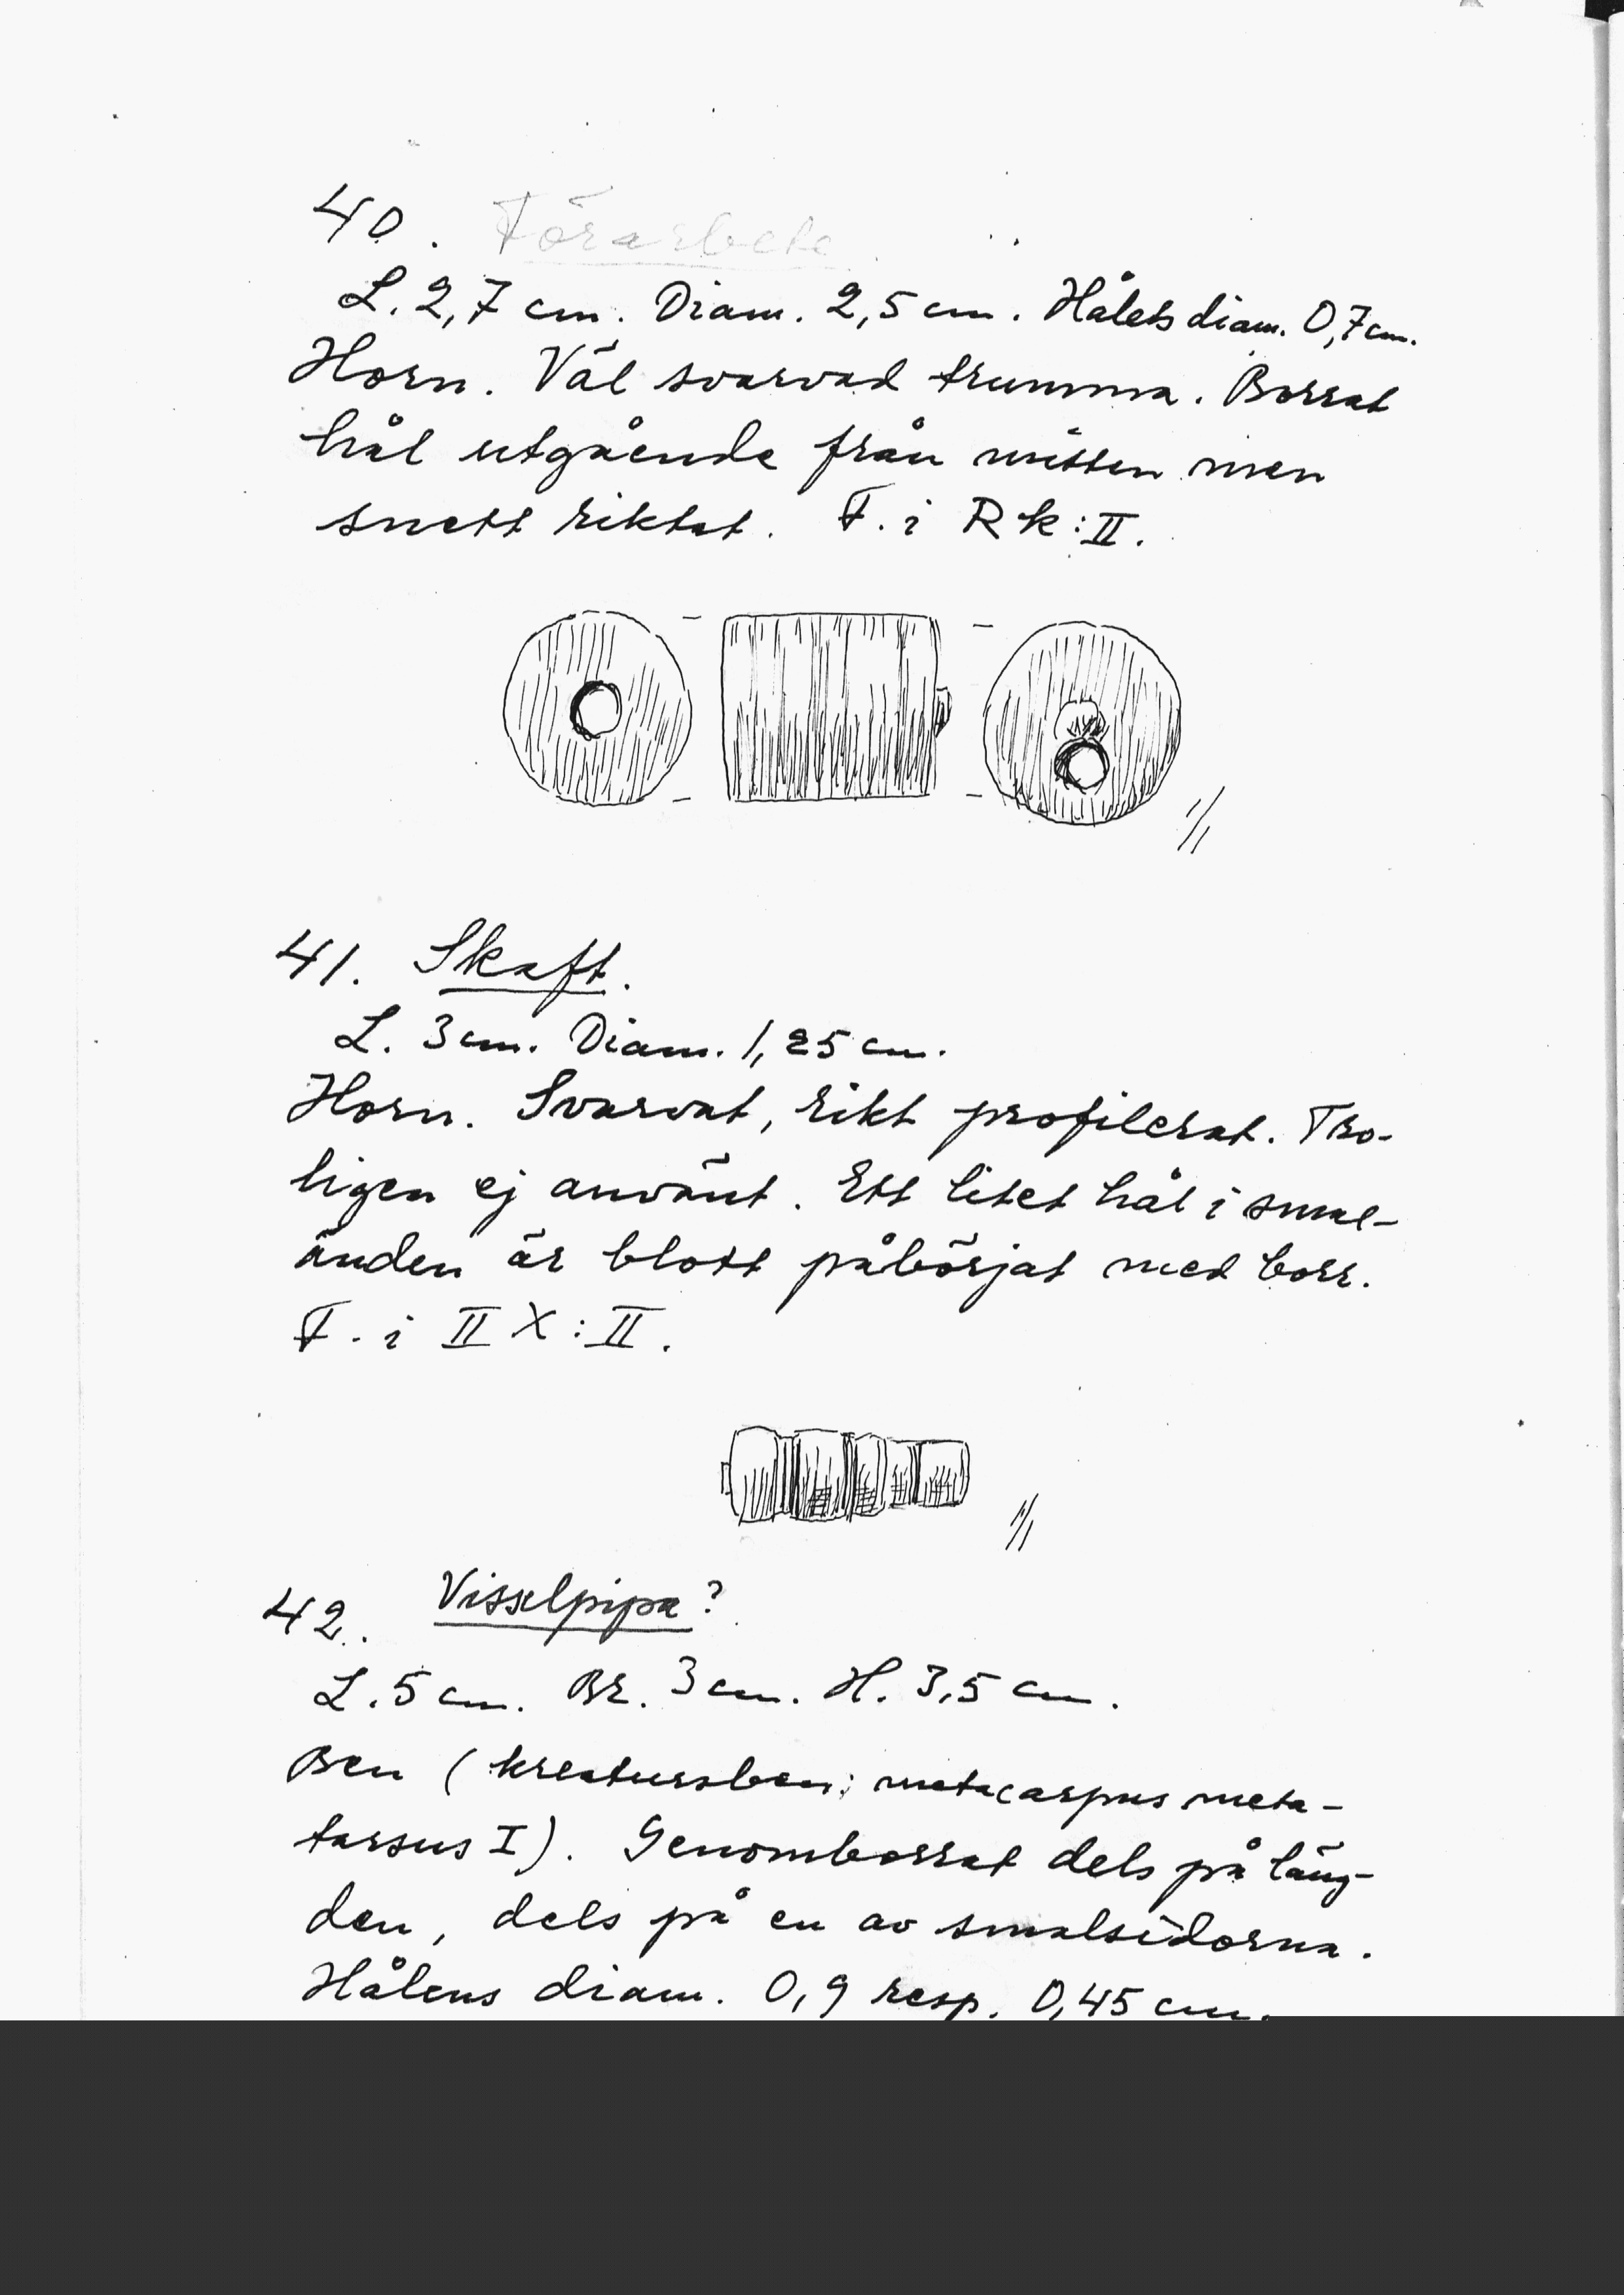 40. Förarbete
L. 2,7 cm. Diam. 2,5 cm. Hålets diam. 0,7 cm.
Horn. Väl svarvad trumma. Borrat
hål utgående från mitten men
snett riktat. F. i Rk:II.
1/1
41. Skaft.
L. 3 cm. Diam. 1,25 cm.
Horn. Svarvat, rikt profilerat. Tro-
ligen ej använt. Ett litet hål i smal-
änden är blott påbörjat med borr.
F. i II X:II.
1/1
42. Visselpipa?
L. 5 cm. Br. 3 cm. H. 3,5 cm.
Ben (kreatursben; metacarpus meta-
tarsus I). Genomborrat dels på läng-
den, dels på en av smalsidorna.
Hålens diam. 0,9 resp. 0,45 cm.